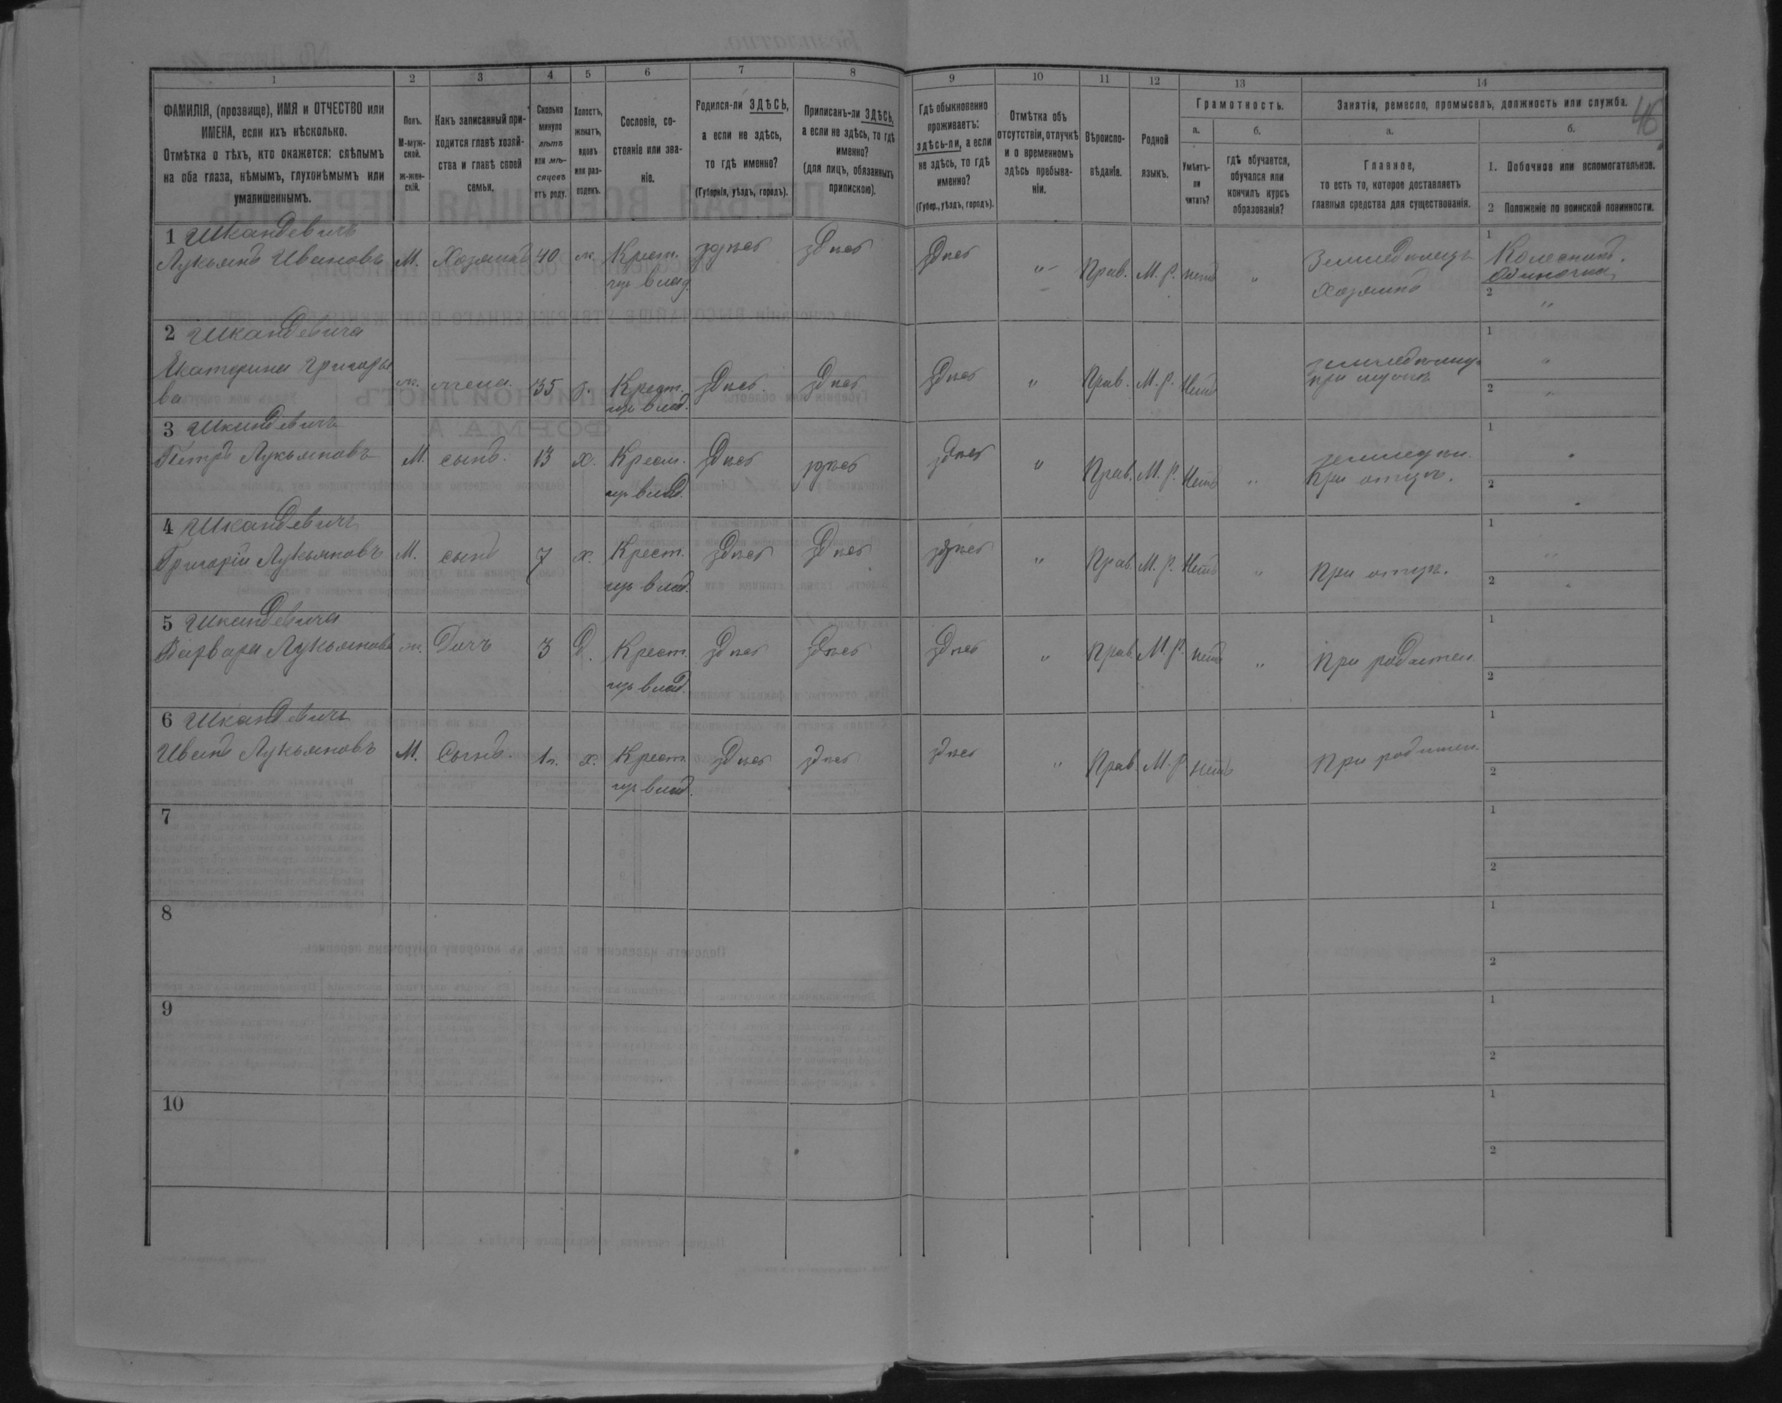 46
1 2 3 4 5 6 7 8 9 10 11 12 13 14
ФАМИЛІЯ, (прозвище), ИМЯ и ОТЧЕСТВО или
ИМЕНА, если ихъ нѣсколько.
Отмѣтка о тѣхъ, кто окажется: слѣпымъ
на оба глаза, нѣмымъ, глухонѣмымъ или
умалишеннымъ.
Полъ.
М-муж-
ской.
ж-жен-
скій.
Какъ записанный при-
ходится главѣ хозяй-
ства и главѣ своей
семьи.
Сколько
минуло
лѣтъ
или мѣ-
сяцевъ
отъ роду.
Холостъ,
женатъ,
вдовъ
или раз-
веденъ.
Сословіе, со-
стояніе или зва-
ніе.
Родился-ли ЗДѢСЬ,
а если не здѣсь,
то гдѣ именно?
(Губернія, уѣздъ, городъ).
Приписанъ-ли ЗДѢСЬ,
а если не здѣсь, то гдѣ
именно?
(для лицъ, обязанныхъ
припискою).
Гдѣ обыкновенно
проживаетъ:
здѣсь-ли, а если
не здѣсь, то гдѣ
именно?
(Губер., уѣздъ, городъ).
Отмѣтка объ
отсутствіи, отлучкѣ
и о временномъ
здѣсь пребыва-
ніи.
Вѣроиспо-
вѣданіе.
Родной
языкъ.
Грамотность.
а.
Умѣетъ-
ли
читать?
б.
гдѣ обучается,
обучался или
кончилъ курсъ
образованія?
Занятіе, ремесло, промыселъ, должность или служба.
а.
Главное,
то есть то, которое доставляетъ
главныя средства для существованія.
б.
1. Побочное или вспомогательное.
2 Положеніе по воинской повинности.
1 Шкандевичъ
Лукьянъ Ивановъ М. Хозяинъ 40 ж. Крест. здѣсь здѣсь здѣсь " Прав. М. р. нетъ " Земледѣлецъ 1 Колесникъ.
влад. хозяинъ одиночка
2 "
2 Шкандевича
Екатерина Григорье
ва ж. жена 35 з. Крест. здѣсь здѣсь здѣсь " Прав. М. р. Нетъ при мужѣ 1 "
влад. 2 "
3 Шкандевичъ
Петръ Лукьяновъ М. сынъ. 13 х. Крест. здѣсь здѣсь здѣсь " Прав. М. р. Нетъ " при отцѣ. 1 "
влад. 2 "
4 Шкандевичъ
Григорій Лукьяновъ М. сынъ 7 х. Крест. здѣсь здѣсь здѣсь " Прав М. р. Нетъ " При отцѣ. 1 "
влад. 2 "
5 Шкандевича
Варвара Лукьянова ж. Дочъ 3 д. Крест. здѣсь здѣсь здѣсь " Прав М. р. нетъ " При родител 1
влад. 2
6 Шкандевичъ
Иванъ Лукьяновъ М. Сынъ. 1 х. Крест. здѣсь здѣсь здѣсь " Прав М. р нетъ При родител 1
влад. 2
7 1
2
8 1
2
9 1
2
10 1
2